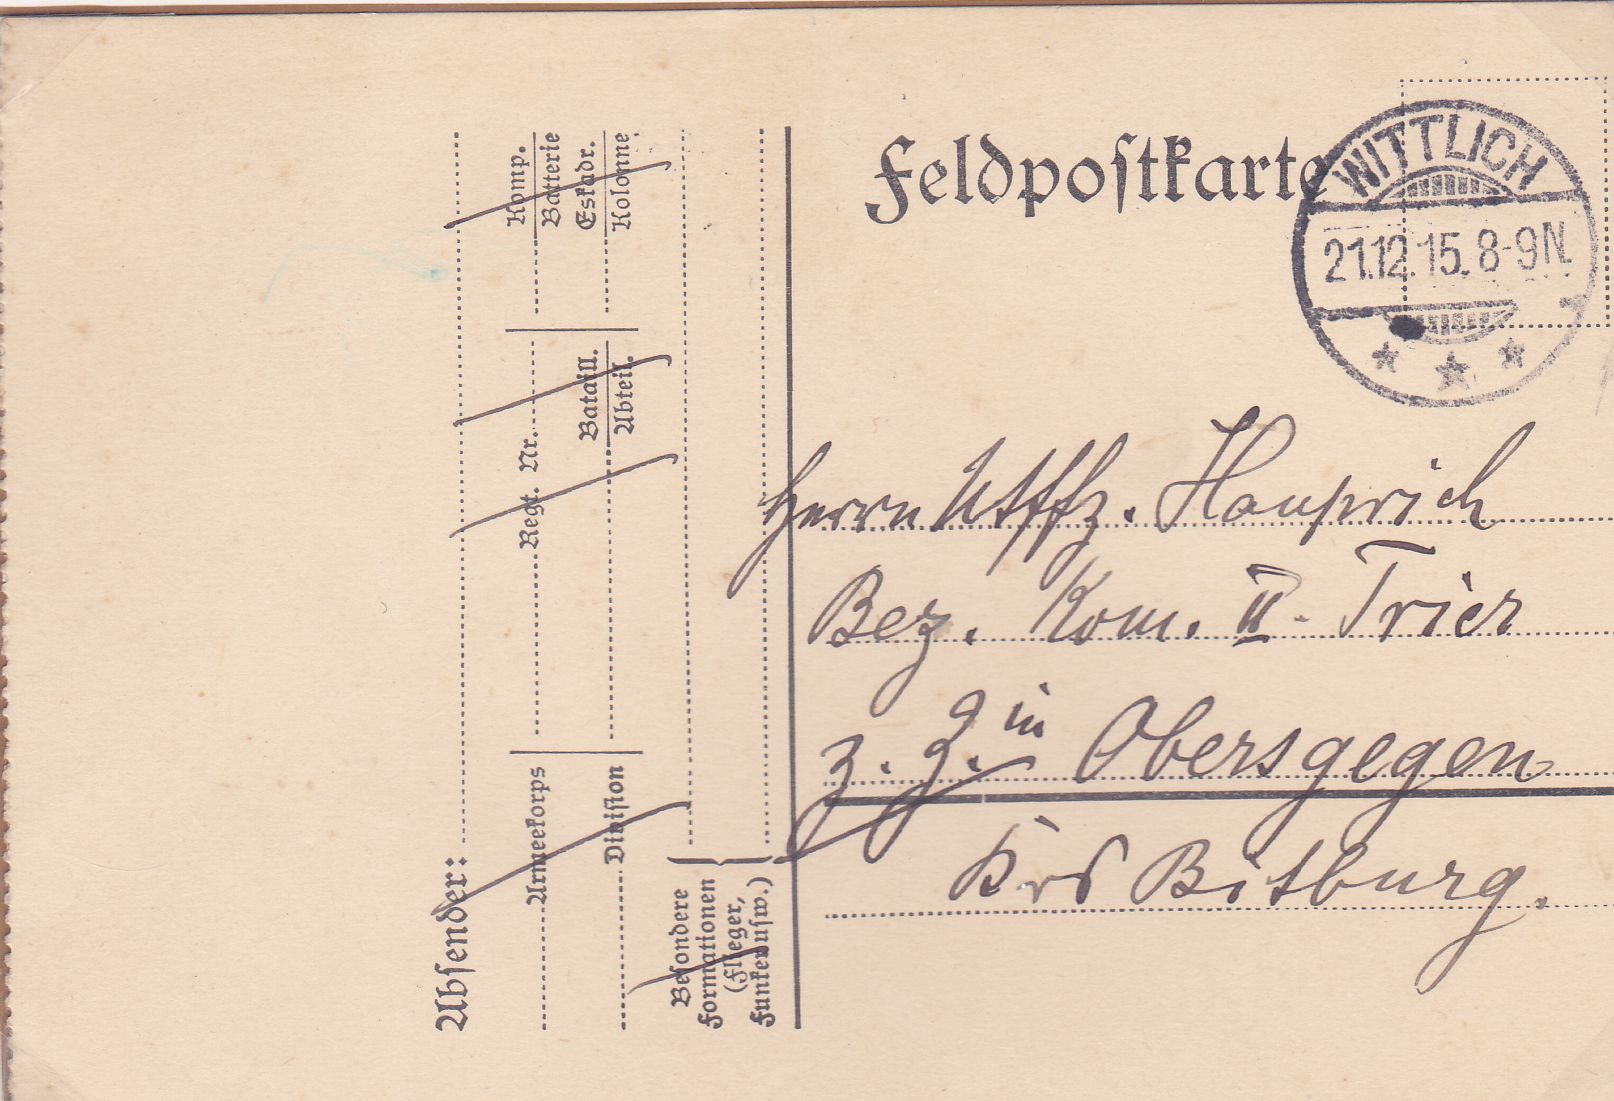 Feldpostkarte
WITTLICH
21.12.15. 8-9N.
Herrn Utffz. Hauprich
Bez. Kom. II. Trier
z. Z. in Obersgegen
Krs Bitburg.
Absender:
Armeekorps
Regt. Nr.
Komp.
Batterie
Division
Bataill.
Abteil.
Eskadr.
Kolonne
Besondere
Formationen
(Flieger,
Funker usw.)